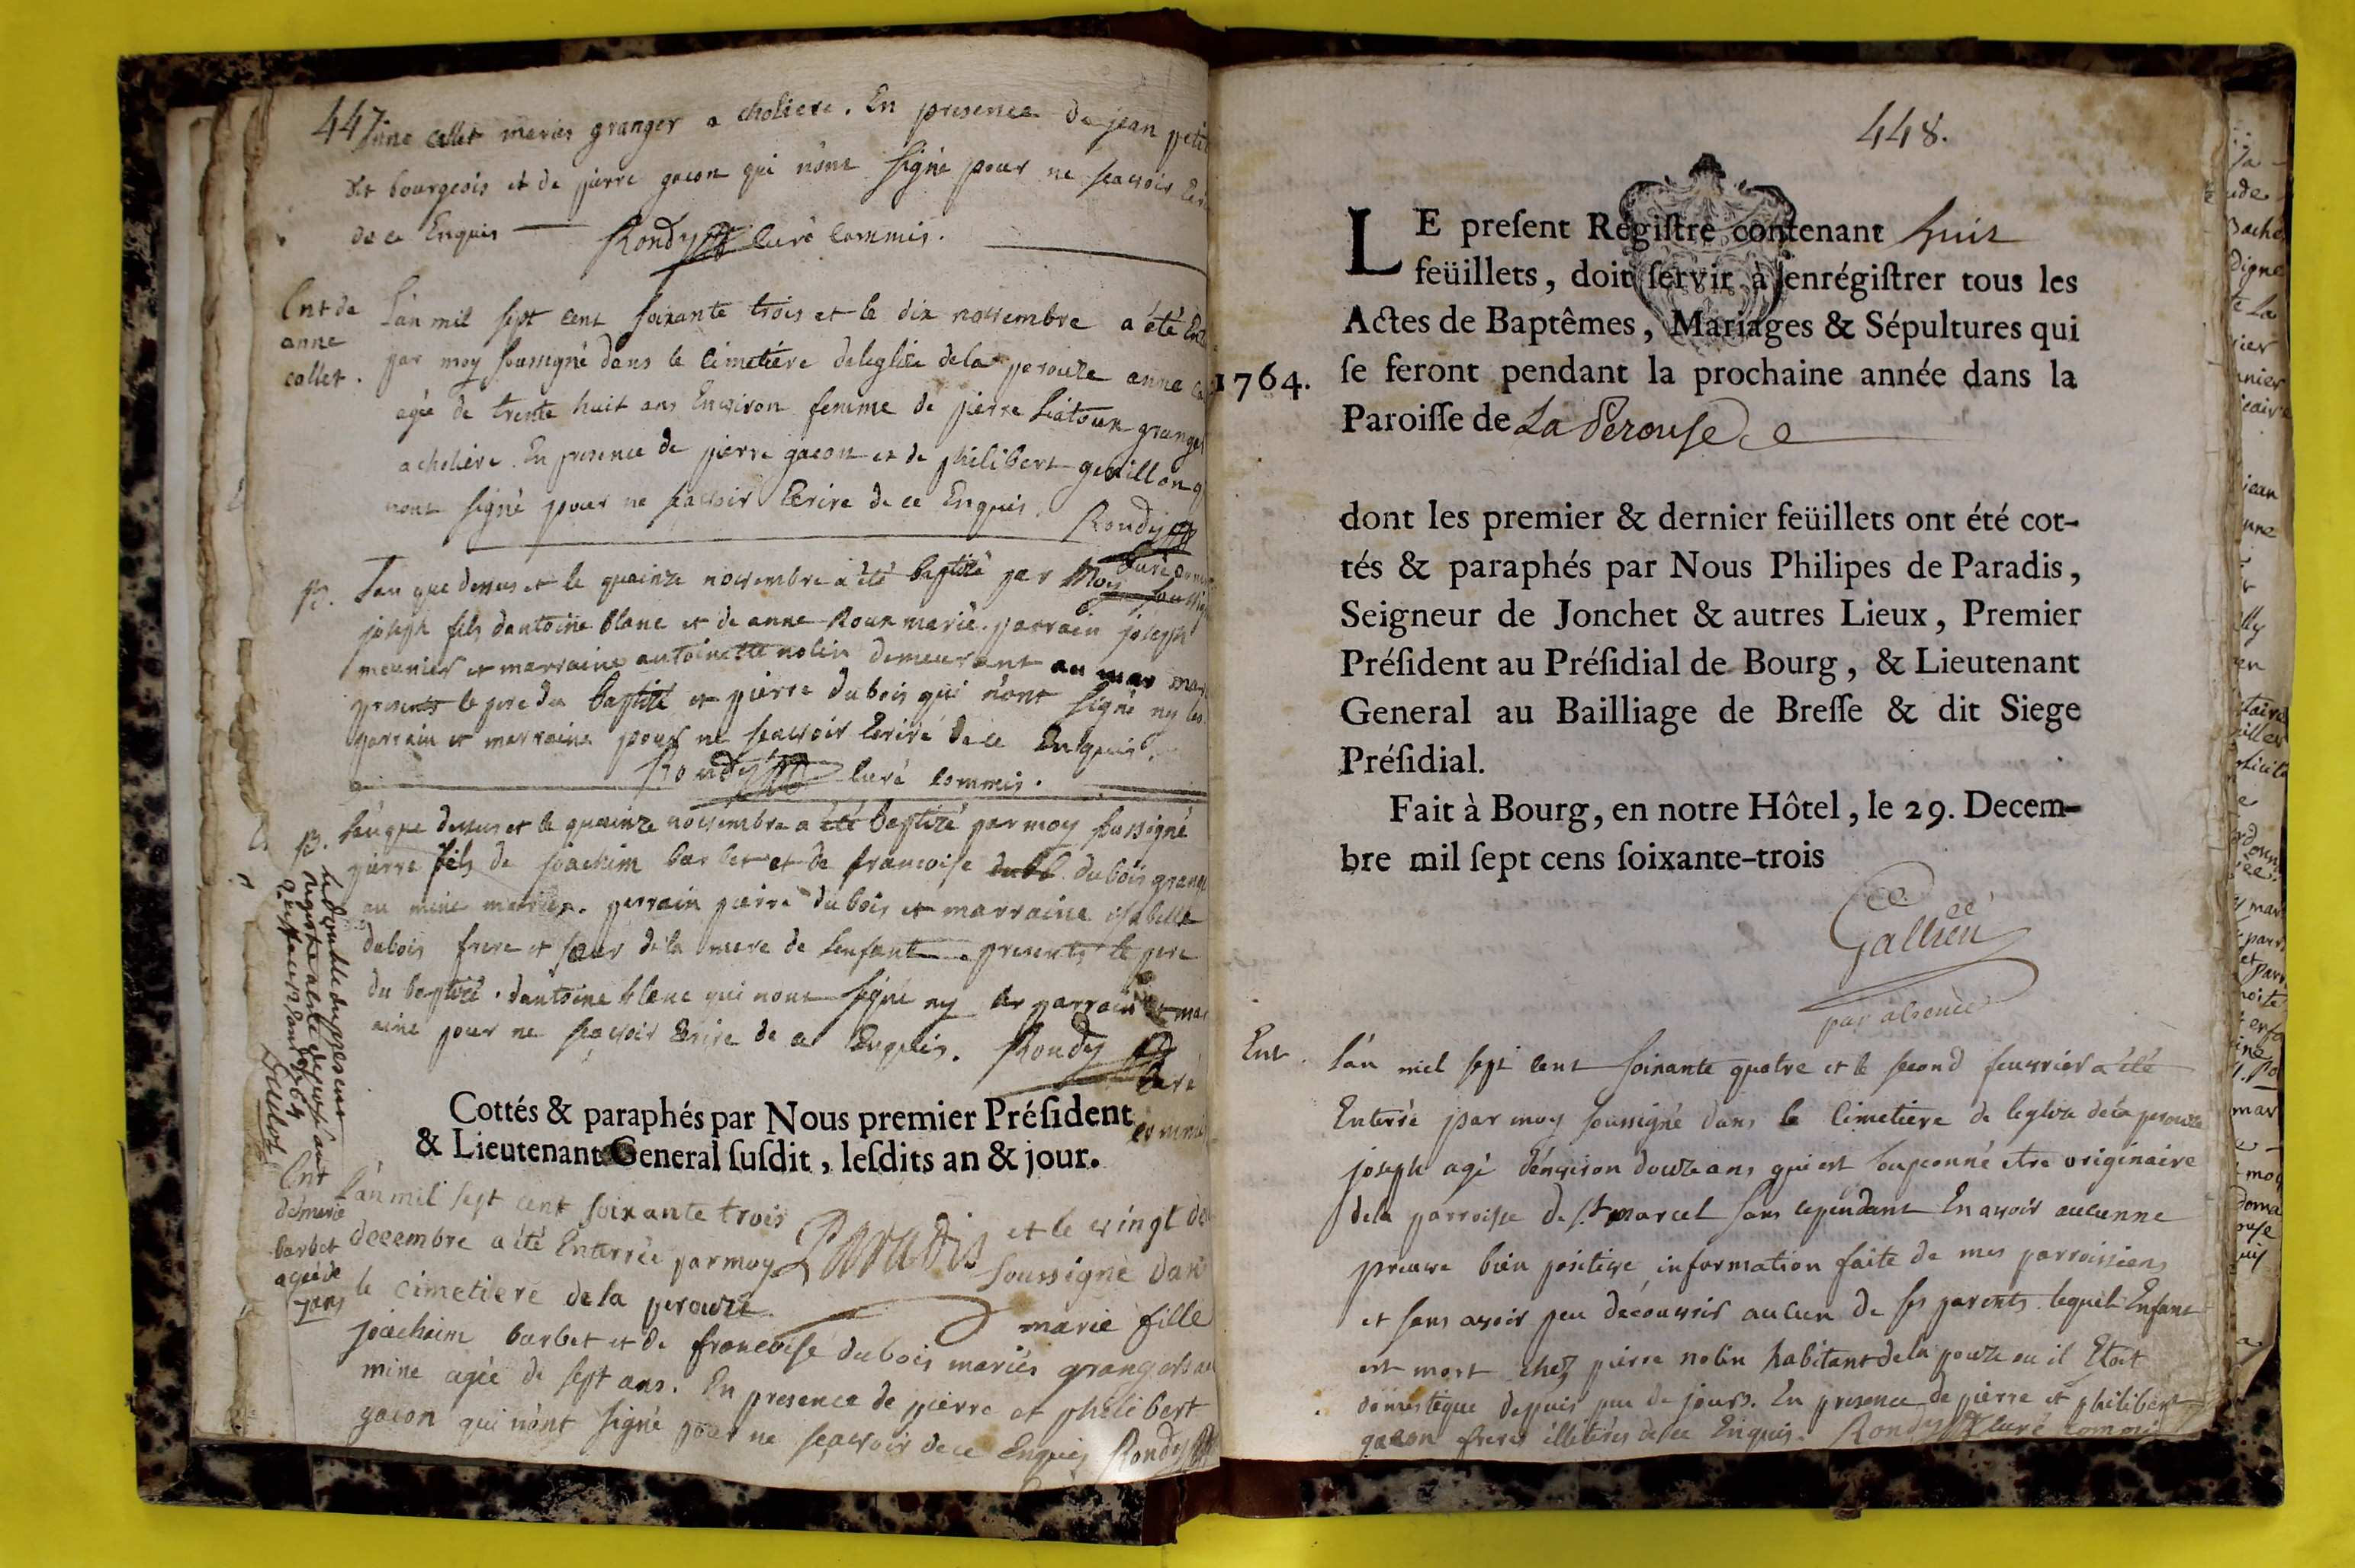 447
anne collet mariés granger a choliere. En presence de jean petit
dit bourgeois et de pierre gacon qui n'ont signé pour ne scavoir
de ce Enquis Rondy curé commis.
Ent de
anne
collet.
L'an mil sept cent soixante trois et le dix novembre a été
par moy soussigné dans le cimetière de leglise dela perouze anne
agée de trente huit ans Environ femme de pierre granger
a choliere. En presence de pierre gacon et de philibert
nont signé pour ne scavoir Ecrire de ce Enquis. Rondy
curé
B.
L'an que dessus et le quainze novembre a été baptizé par Moy
joseph fils dantoine blanc et de anne Roux marié. parrain joseph
meunier et marraine antoinette nolin demeurant au mas
presents le pere du baptizé et pierre dubois qui n'ont signé ny les
parrain et marraine pour ne scavoir Ecrire de ce Enquis.
Rondy curé commis.
B.
L'an que dessus et le quainze novembre a été baptizé par moy soussigné
pierre fils de joachim barbet et de francoise dubois
au mine mariés. parrain pierre dubois et marraine isabelle
dubois frere et sœur de la mere de lenfant presents le pere
du baptizé. dantoine blanc qui nont signé ny les parrain et
aine pour ne scavoir Ecrire de ce Enquis. Rondy
curé
commis
le double du present
registre a été deposé au
greffe
1764
Cottés & paraphés par Nous premier Préſident
& Lieutenant General ſuſdit, leſdits an & jour.
Paradis
Ent
de marie
barbet
agée de
7 ans
L'an mil sept cent soixante trois et le vingt
decembre a été Enterrée par moy soussigné dans
le cimetiere dela perouze. marie fille
joachim barbet et de francoise dubois mariés grangers au
mine agée de sept ans. En presence de pierre et philibert
gacon qui n'ont signé pour ne scavoir de ce Enquis Rondy
448.
LE preſent Régiſtre contenant huit
feüillets, doit ſervir à enrégiſtrer tous les
Actes de Baptêmes, Mariages & Sépultures qui
1764. ſe feront pendant la prochaine année dans la
Paroiſſe de La Perouse
dont les premier & dernier feüillets ont été cot-
tés & paraphés par Nous Philipes de Paradis,
Seigneur de Jonchet & autres Lieux, Premier
Préſident au Préſidial de Bourg, & Lieutenant
General au Bailliage de Breſſe & dit Siege
Préſidial.
Fait à Bourg, en notre Hôtel, le 29. Decem-
bre mil ſept cens ſoixante-trois
Gallien
par absence
Ent.
L'an mil sept cent soixante quatre et le second feuvrier a été
Enterré par moy soussigné dans le cimetiere de leglize dela perouze
joseph agé d'environ douze ans qui est soupconné etre originaire
dela parroisse de St marcel sans cependant En avoir aucunne
preuve bien positive information faite de mes parroissiens
et sans avoir peu découvrir aucun de ses parents lequel Enfant
est mort chez pierre nolin habitant dela ou il Etoit
domestique depuis peu de jours. En presence de pierre et philibert
gacon freres illetérés de ce Enquis. Rondy curé commis